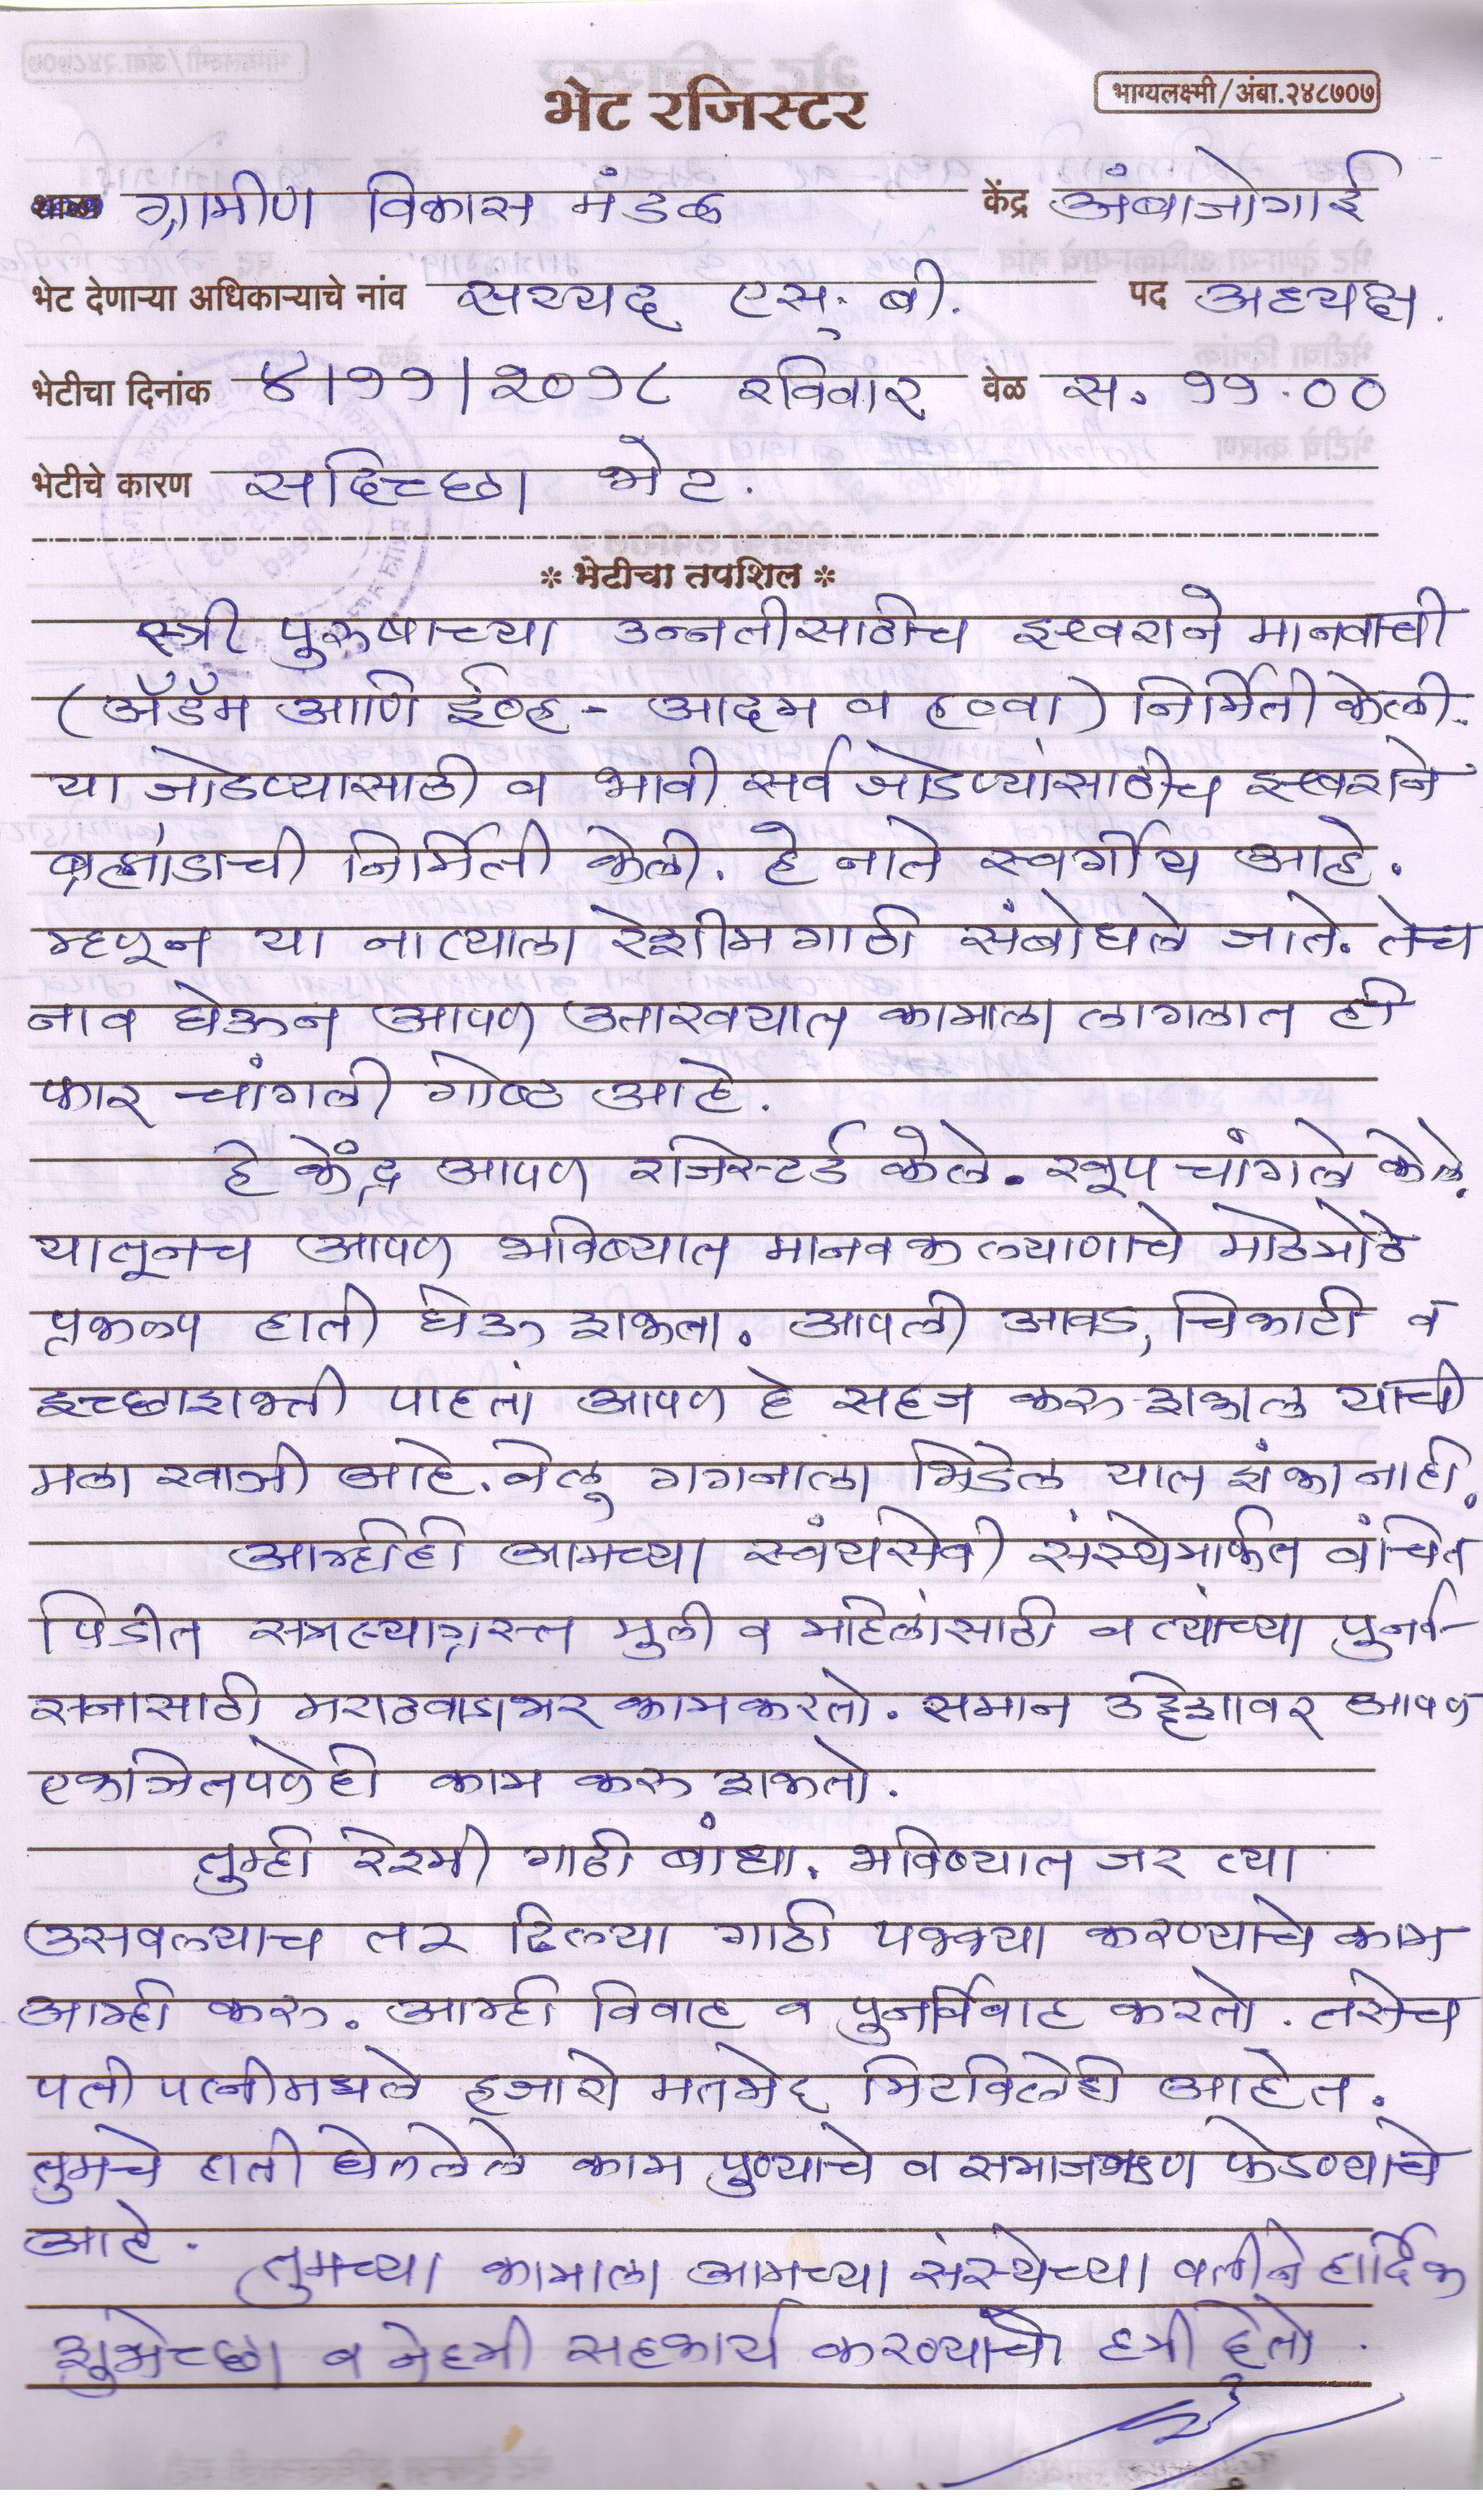 भेट रजिस्टर
भाग्यलक्ष्मी/अंबा.२४८७०७
ग्रामीण विकास मंडळ केंद्र अंबाजोगाई
भेट देणाऱ्या अधिकाऱ्याचे नांव सय्यद एस. बी. पद अध्यक्ष.
भेटीचा दिनांक ४/११/२०१८ रविवार वेळ स. ११.००
भेटीचे कारण सदिच्छा भेट.
* भेटीचा तपशिल *
स्त्री पुरुषाच्या उन्नतीसाठीच इश्वराने मानवाची
(ॲडॅम आणि ईव्ह - आदम व हव्वा) निर्मिती केली.
या जोडप्यासाठी व भावी सर्व जोडप्यांसाठीच इश्वराने
ब्रह्मांडाची निर्मिती केली. हे नाते स्वर्गीय आहे.
म्हणून या नात्याला रेशीमगाठी संबोधले जाते. तेच
नाव घेऊन आपण उतारवयात कामाला लागलात ही
फार चांगली गोष्ट आहे.
हे केंद्र आपण रजिस्टर्ड केले. खूप चांगले केले.
यातूनच आपण भविष्यात मानवकल्याणाचे मोठेमोठे
प्रकल्प हाती घेऊ शकता. आपली आवड, चिकाटी व
इच्छाशक्ती पाहता आपण हे सहज करु शकाल याची
मला खात्री आहे. वेलु गगनाला भिडेल यात शंका नाही.
आम्हीही आमच्या स्वंयसेवी संस्थेमार्फत वंचित
पिडीत समस्याग्रस्त मुली व महिलांसाठी व त्यांच्या पुनर्व-
सनासाठी मराठवाडाभर काम करतो. समान उद्देशावर आपण
एकत्रितपणेही काम करु शकतो.
तुम्ही रेशमी गाठी बांधा. भविष्यात जर त्या
उसवल्याच तर ढिल्या गाठी पक्क्या करण्याचे काम
आम्ही करु. आम्ही विवाह व पुनर्विवाह करतो. तसेच
पती पत्नीमधले हजारो मतभेद मिटविलेही आहेत.
तुमचे हाती घेतलेले काम पुण्याचे व समाजऋण फेडण्याचे
आहे.
तुमच्या कामाला आमच्या संस्थेच्या वतीने हार्दिक
शुभेच्छा व नेहमी सहकार्य करण्याची हमी देतो.